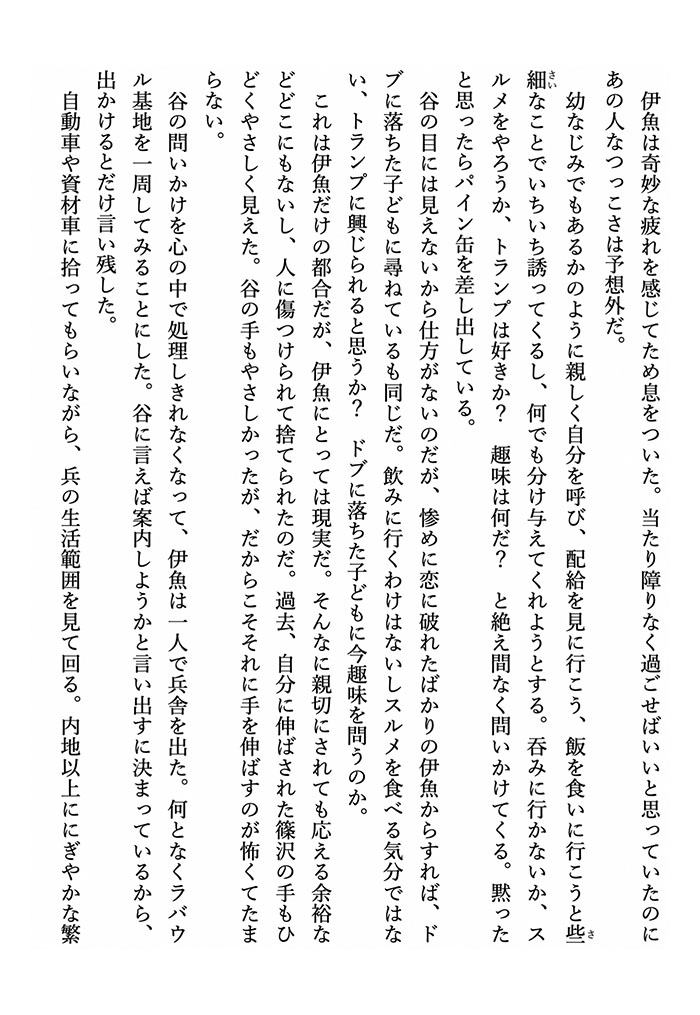 伊魚は奇妙な疲れを感じてため息をついた。当たり障りなく過ごせばいいと思っていたのに
あの人なつっこさは予想外だ。
幼なじみでもあるかのように親しく自分を呼び、配給を見に行こう、飯を食いに行こうと些
細なことでいちいち誘ってくるし、何でも分け与えてくれようとする。呑みに行かないか、ス
ルメをやろうか、トランプは好きか？　趣味は何だ？　と絶え間なく問いかけてくる。黙った
と思ったらパイン缶を差し出している。
谷の目には見えないから仕方がないのだが、惨めに恋に破れたばかりの伊魚からすれば、ド
ブに落ちた子どもに尋ねているも同じだ。飲みに行くわけはないしスルメを食べる気分ではな
い、トランプに興じられると思うか？　ドブに落ちた子どもに今趣味を問うのか。
これは伊魚だけの都合だが、伊魚にとっては現実だ。そんなに親切にされても応える余裕な
どどこにもないし、人に傷つけられて捨てられたのだ。過去、自分に伸ばされた篠沢の手もひ
どくやさしく見えた。谷の手もやさしかったが、だからこそそれに手を伸ばすのが怖くてたま
らない。
谷の問いかけを心の中で処理しきれなくなって、伊魚は一人で兵舎を出た。何となくラバウ
ル基地を一周してみることにした。谷に言えば案内しようかと言い出すに決まっているから、
出かけるとだけ言い残した。
自動車や資材車に拾ってもらいながら、兵の生活範囲を見て回る。内地以上ににぎやかな繁